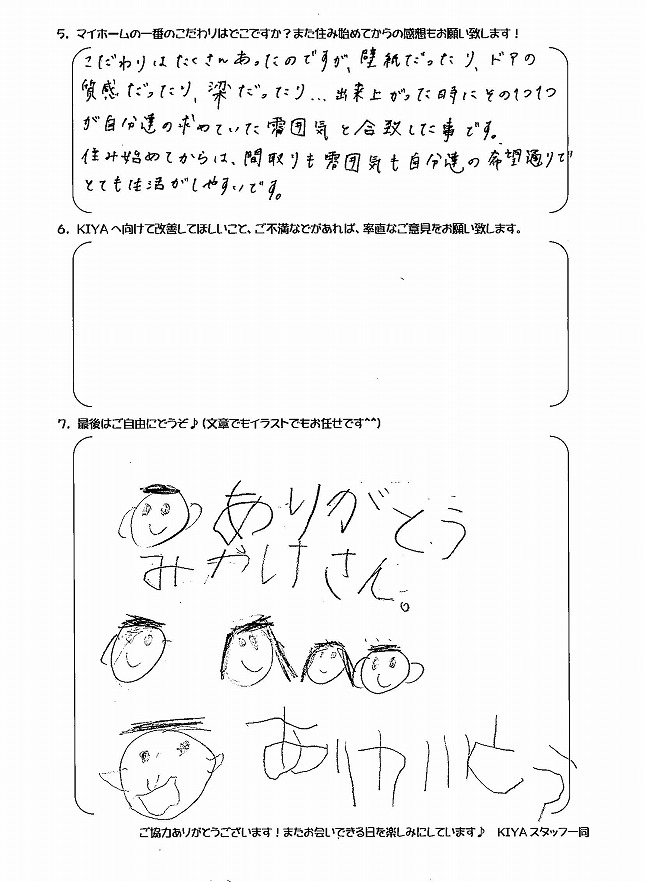 5. マイホームの一番のこだわりはどこですか？また住み始めてからの感想もお願い致します！
こだわりはたくさんあったのですが、壁紙だったり、ドアの
質感だったり、梁だったり…出来上がった時にその1つ1つ
が自分達の求めていた雰囲気と合致した事です。
住み始めてからは、間取りも雰囲気も自分達の希望通りで
とても生活がしやすいです。
6. KIYAへ向けて改善してほしいこと、ご不満などがあれば、率直なご意見をお願い致します。
7. 最後はご自由にどうぞ♪(文章でもイラストでもお任せです^^)
ありがとう
みやけさん。
ありがとう
ご協力ありがとうございます！またお会いできる日を楽しみにしています♪ KIYAスタッフ一同